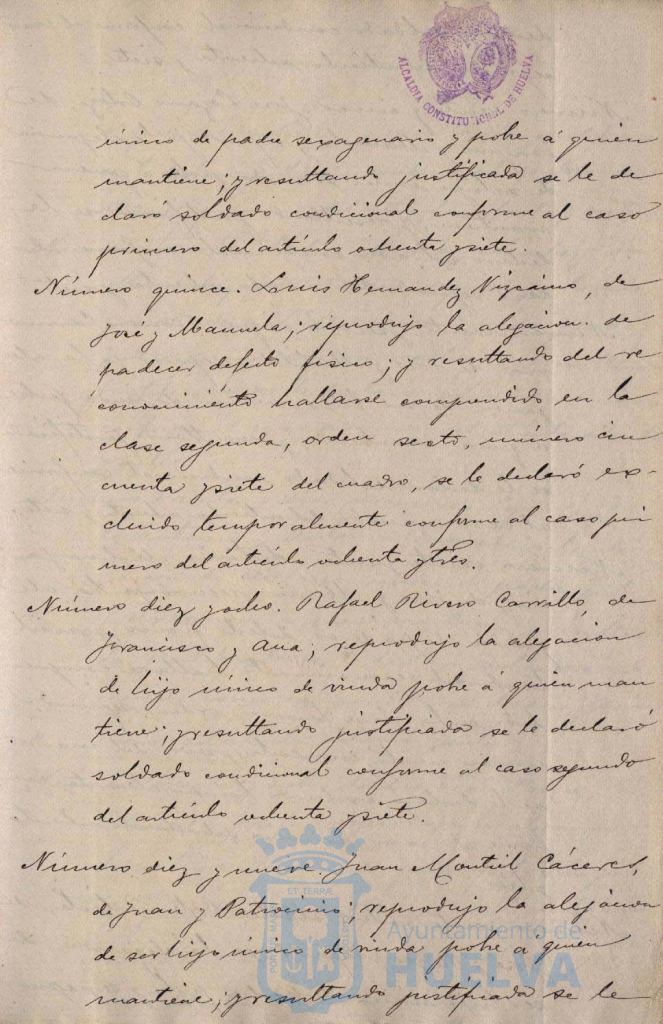 ALCALDIA CONSTITUCIONAL DE HUELVA
único de padre sexagenario y pobre á quien
mantiene; y resultando justificada se le de
claró soldado condicional conforme al caso
primero del artículo ochenta y siete.
Número quince. Luis Hernandez Vizcaino, de
José y Manuela; reprodujo la alegacion de
padecer defecto físico; y resultando del re
conocimiento hallarse comprendido en la
clase segunda, orden sexto, número cin
cuenta y siete del cuadro, se le declaró ex-
cluido temporalmente conforme al caso pri
mero del artículo ochenta y tres.
Número diez y ocho. Rafael Rivero Carrillo, de
Francisco y Ana; reprodujo la alegacion
de hijo único de viuda pobre á quien man
tiene; y resultando justificada se le declaró
soldado condicional conforme al caso segundo
del artículo ochenta y siete.
Número diez y nueve. Juan Montiel Cáceres,
de Juan y Patrocinio; reprodujo la alegacion
de ser hijo único de viuda pobre á quien
mantiene; y resultando justificada se le
Ayuntamiento de
HUELVA